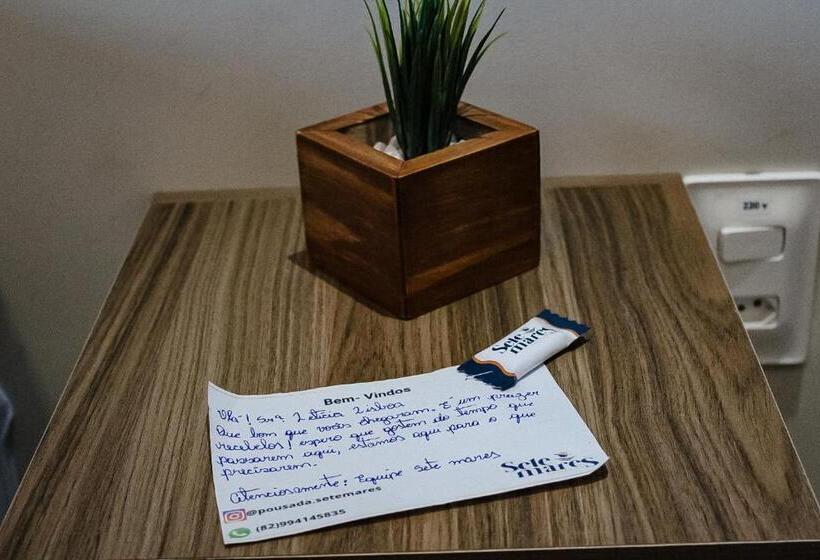 220 v
Sete
mares
Bem- Vindos
Olá! Sra Letícia Lisboa
Que bom que vocês chegaram. É um prazer
recebelos! espero que gostem do tempo que
passarem aqui, estamos aqui para o que
precisarem.
Atenciosamente: Equipe Sete mares
Sete
mares
@pousada.setemares
(82)994145835